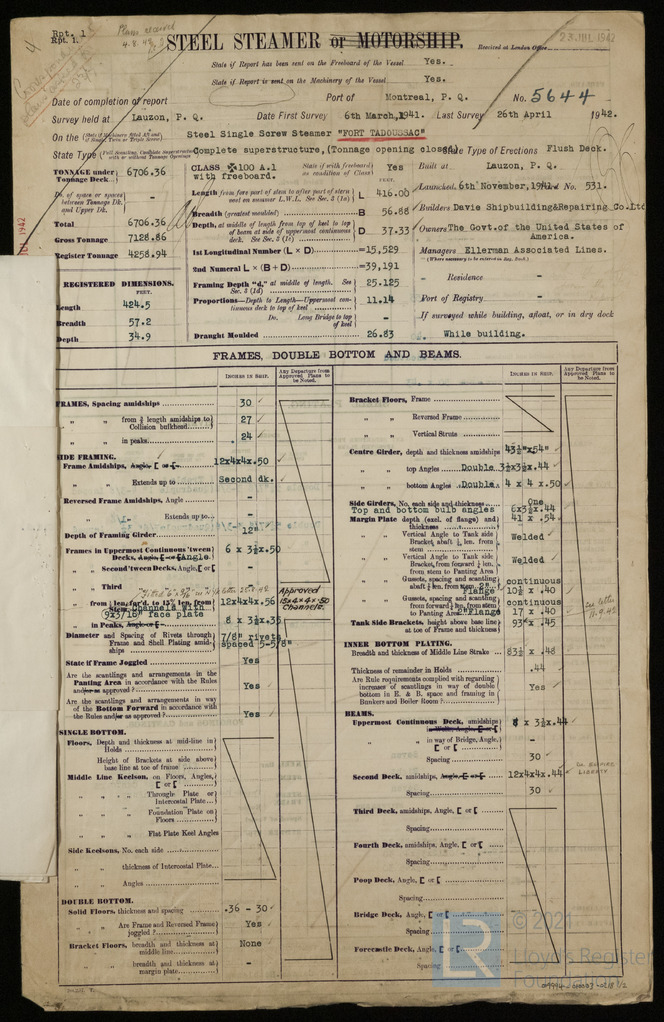 Rpt. 1
Rpt. 1.
Plans received
4.8.42
STEEL STEAMER or MOTORSHIP.
Received at London Office
23.III.1942
State if Report has been sent on the Freeboard of the Vessel Yes.
State if Report is sent on the Machinery of the Vessel Yes.
Date of completion of report Port of Montreal, P. Q. No. 5644
Survey held at Lauzon, P. Q. Date First Survey 6th March, 1941. Last Survey 26th April 1942.
On the Steel Single Screw Steamer "FORT TADOUSSAC"
State Type Complete superstructure, (Tonnage opening closed) State Type of Erections Flush Deck.
TONNAGE under Tonnage Deck 6706.36
Do. of space or spaces between Tonnage Dk. and Upper Dk. -
Total 6706.36
Gross Tonnage 7128.86
Register Tonnage 4258.94
REGISTERED DIMENSIONS.
FEET.
Length 424.5
Breadth 57.2
Depth 34.9
CLASS ✠100 A.1 State if with freeboard as condition of Class Yes
with freeboard.
FEET.
Length from fore part of stem to after part of stern post on summer L.W.L. See Sec. 3 (1a) L 416.00
Breadth (greatest moulded) B 56.88
Depth, at middle of length from top of keel to top of beam at side of uppermost continuous deck. See Sec. 3 (1c) D 37.33
1st Longitudinal Number (L × D) =15,529
2nd Numeral L × (B + D) =39,191
Framing Depth "d," at middle of length. See Sec. 3 (1d) 25.125
Proportions—Depth to Length—Uppermost continuous deck to top of keel 11.14
Do. Long Bridge to top of keel -
Draught Moulded 26.83
Built at Lauzon, P. Q.
Launched 6th November, 1941. Yard No. 531.
Builders Davie Shipbuilding&Repairing Co.Ltd
Owners The Govt.of the United States of
America.
Managers Ellerman Associated Lines.
(Where necessary to be entered in Reg. Book.)
Residence -
Port of Registry -
If surveyed while building, afloat, or in dry dock
While building.
FRAMES, DOUBLE BOTTOM AND BEAMS.
INCHES IN SHIP. Any Departure from Approved Plans to be Noted.
FRAMES, Spacing amidships 30
" " from ⅗ length amidships to Collision bulkhead 27
" " in peaks 24
SIDE FRAMING.
Frame Amidships, Angle, [ or [ 12x4x4x.50
" " Extends up to Second dk.
Reversed Frame Amidships, Angle -
" " Extends up to -
Depth of Framing Girder 12"
Frames in Uppermost Continuous 'tween Decks, Angle, [ or [ Angle 6 x 3½x.50
" Second 'tween Decks, Angle, [ or [ -
" Third " " "
" from ½ len. for'd. to 15% len. from Stem Channels with 12x4x4x.56
9x3/16" face plate
Approved
12x4x4x.50
Channels.
" in Peaks, Angle or [ 8 x 3½x.35
Diameter and Spacing of Rivets through Frame and Shell Plating amidships 7/8" rivets
spaced 5-5/8"
State if Frame Joggled Yes
Are the scantlings and arrangements in the Panting Area in accordance with the Rules and/or as approved? Yes
Are the scantlings and arrangements in way of the Bottom Forward in accordance with the Rules and/or as approved? Yes
SINGLE BOTTOM.
Floors, Depth and thickness at mid-line in Holds
Height of Brackets at side above base line at toe of frame
Middle Line Keelson, on Floors, Angles, [ or [
" " Through Plate or Intercostal Plate
" " Foundation Plate on Floors
" " Flat Plate Keel Angles
Side Keelsons, No. each side
" " thickness of Intercostal Plate
" " Angles
DOUBLE BOTTOM.
Solid Floors, thickness and spacing .36 - 30
" " Are Frame and Reversed Frame joggled? Yes
Bracket Floors, breadth and thickness at middle line None
" " breadth and thickness at margin plate -
INCHES IN SHIP. Any Departure from Approved Plans to be Noted.
Bracket Floors, Frame
" " Reversed Frame
" " Vertical Struts
Centre Girder, depth and thickness amidships 43½"x.54"
" " top Angles Double 3½x3½x.44
" " bottom Angles Double 4 x 4 x.50
Side Girders, No. each side and thickness One
Top and bottom bulb angles 6x3½x.44
Margin Plate depth (excl. of flange) and thickness 41 x .54
" " Vertical Angle to Tank side Bracket abaft ¼ len. from stem Welded
" " Vertical Angle to Tank side Bracket, from forward ¼ len. from stem to Panting Area Welded
" " Gussets, spacing and scantling abaft ¼ len. from stem 2" Flange continuous
10½ x .40
" " Gussets, spacing and scantling forward ¼ len. from stem to Panting Area 2" Flange continuous
17 x .40
Tank Side Brackets, height above base line at toe of Frame and thickness 93" x.45
INNER BOTTOM PLATING.
Breadth and thickness of Middle Line Strake 83½ x .48
Thickness of remainder in Holds .44
Are Rule requirements complied with regarding increases of scantlings in way of double bottom in E. & B. space and framing in Bunkers and Boiler Room? Yes
BEAMS.
Uppermost Continuous Deck, amidships 8 x 3½x.44
" " in way of Bridge, Angle, [ or [ -
Spacing 30
Second Deck, amidships, Angle, [ or [ 12x4x4x.44
Spacing 30
Third Deck, amidships, Angle, [ or [
Spacing
Fourth Deck, amidships, Angle, [ or [
Spacing
Poop Deck, Angle, [ or [
Spacing
Bridge Deck, Angle, [ or [
Spacing
Forecastle Deck, Angle, [ or [
Spacing
© 2021
Lloyd's Register
Foundation
LR